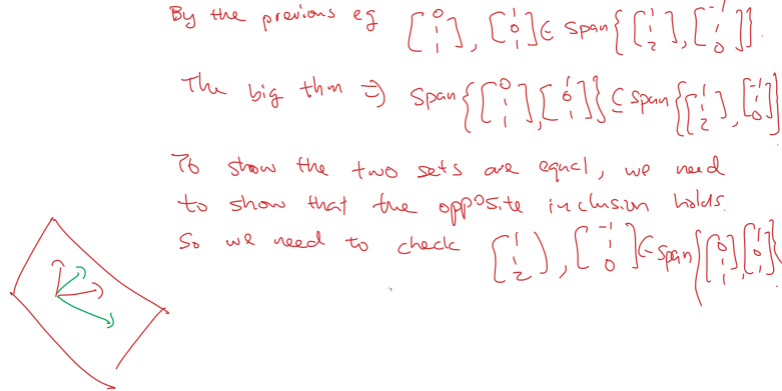 By the previous eg [0 1 1], [1 0 1] ∈ span{[1 1 2], [-1 1 0]}.
The big thm ⇒ span{[0 1 1], [1 0 1]} ⊆ span{[1 1 2], [-1 1 0]}
To show the two sets are equal, we need
to show that the opposite inclusion holds.
So we need to check [1 1 2], [-1 1 0] ∈ span{[0 1 1], [1 0 1]}.